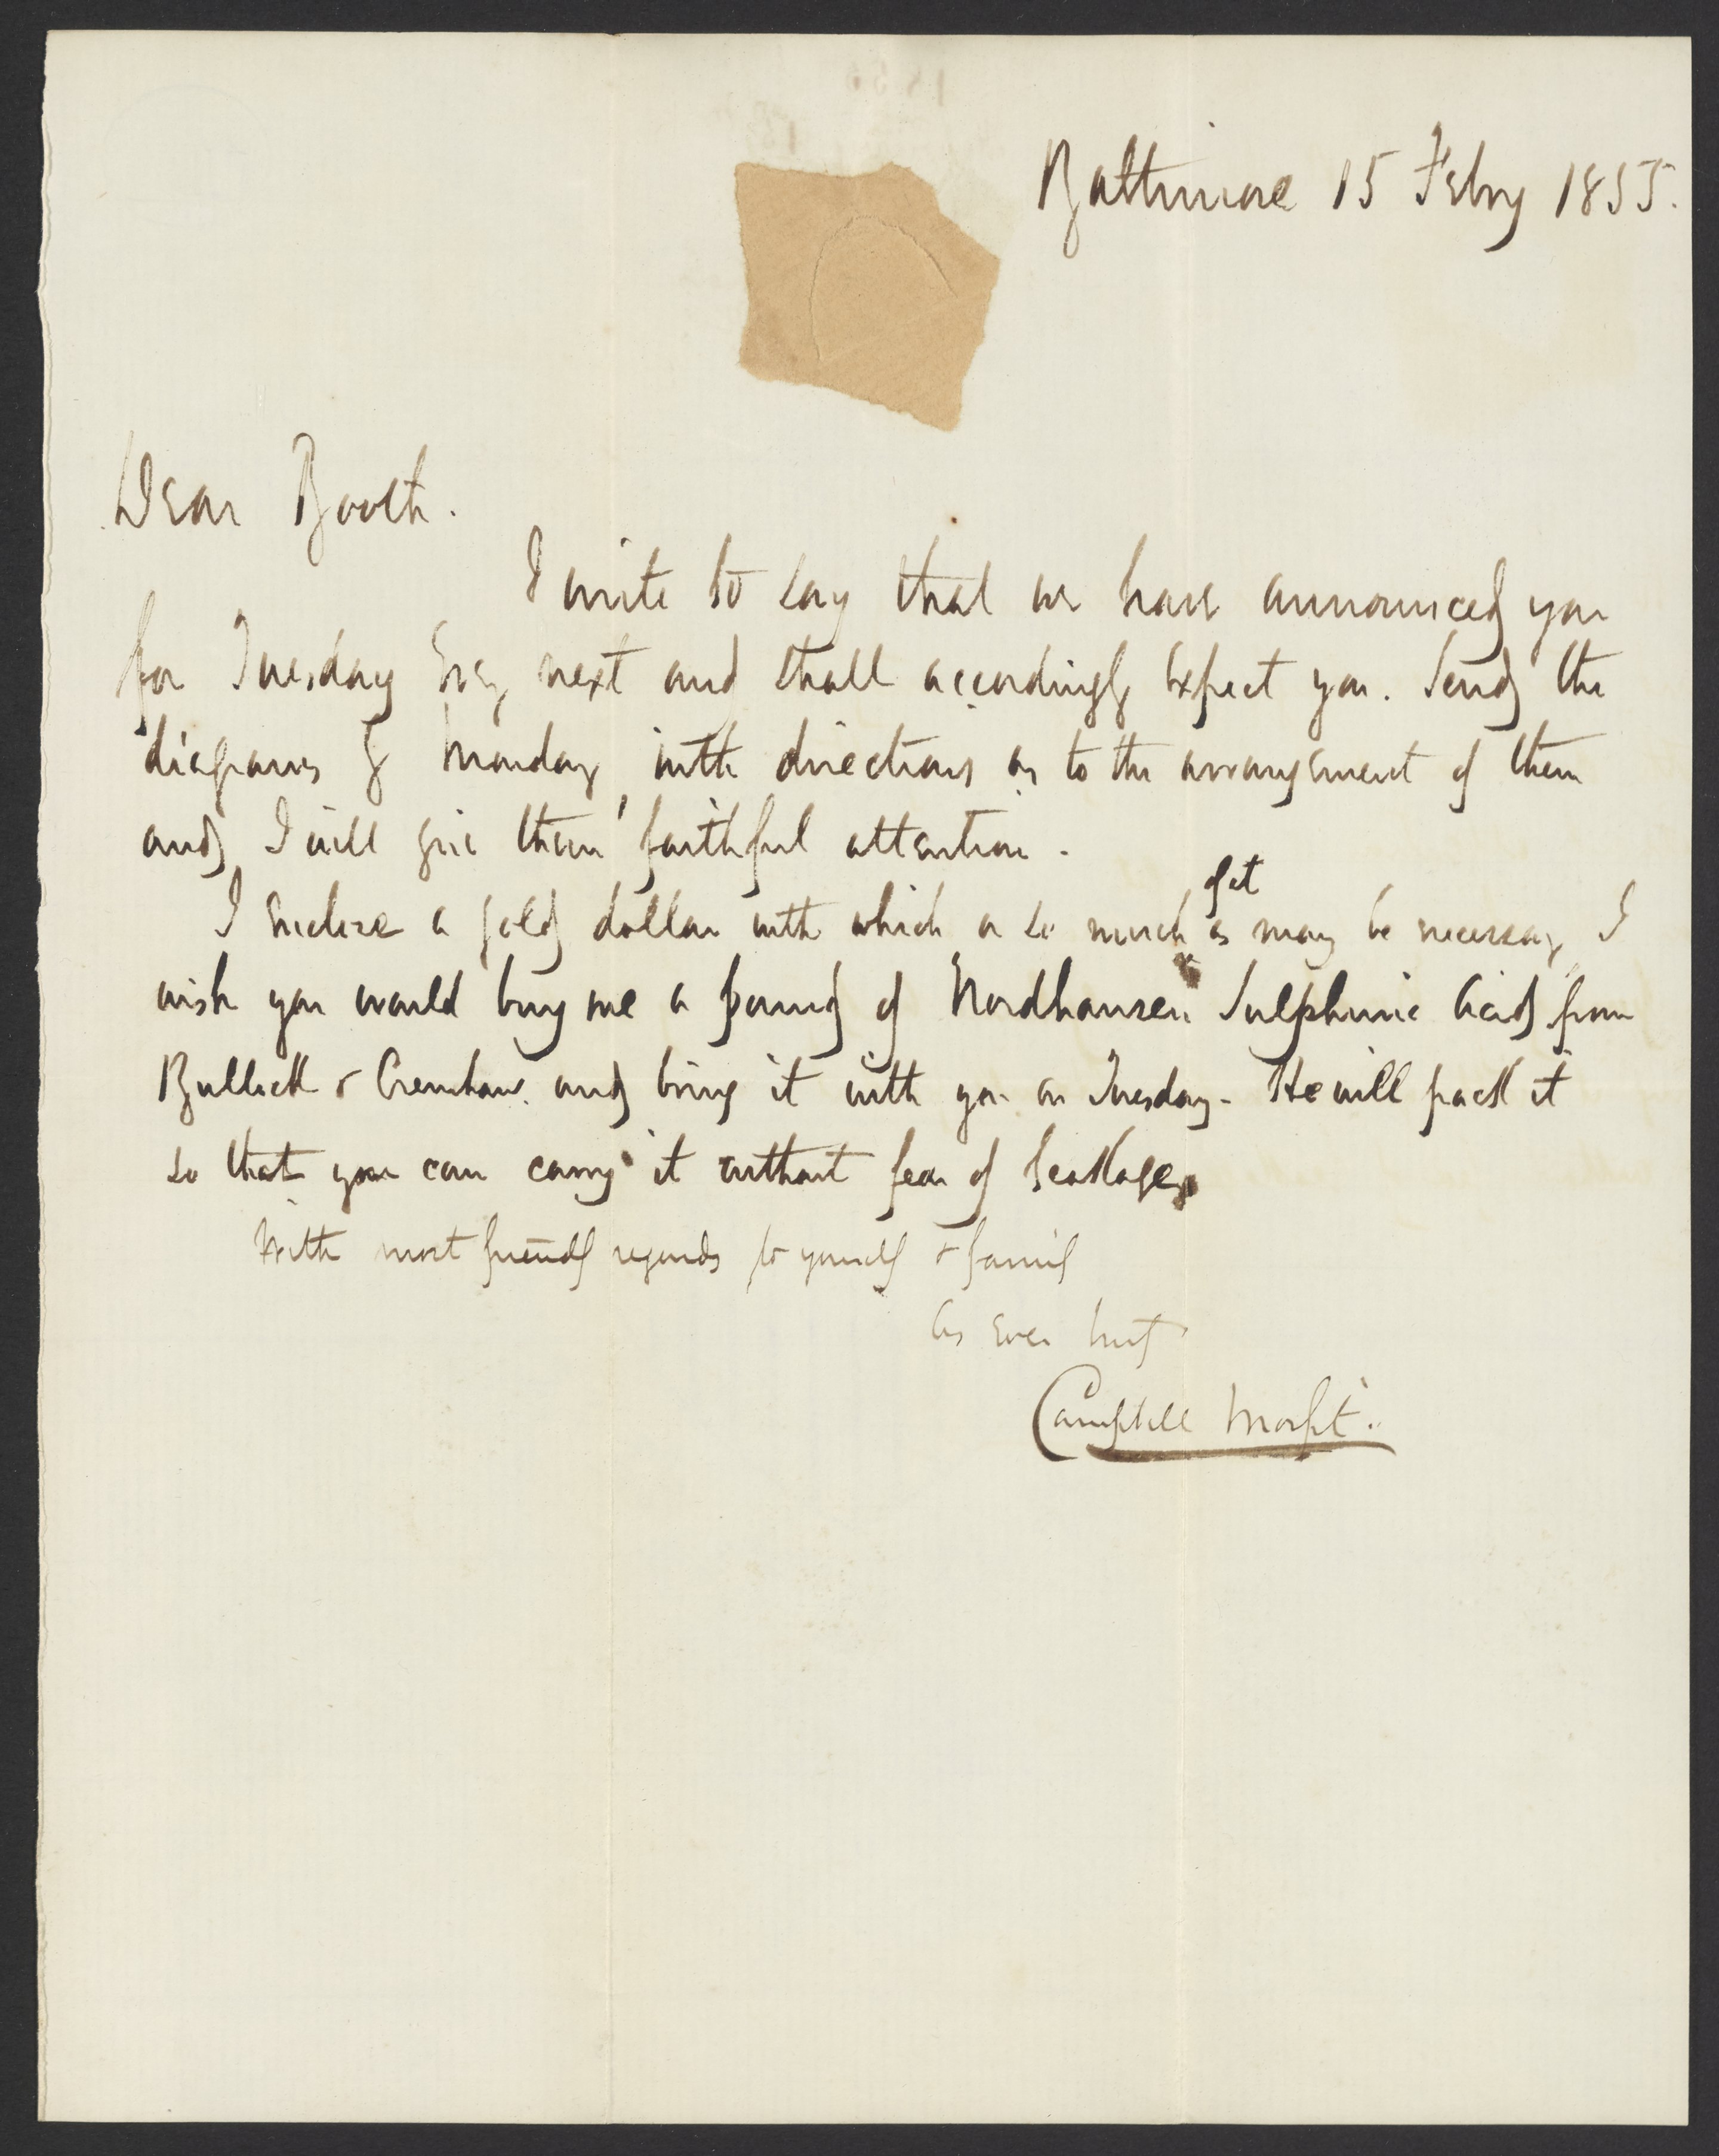 Baltimore 15 Feby 1855.
Dear Booth.
I write to say that we have announced you
for Tuesday Evg next and shall accordingly expect you. Send the
diagrams by Monday with directions as to the arrangement of them
and I will give them faithful attention.
I enclose a gold dollar with which or so much of it as may be necessary I
wish you would buy me a pound of Nordhausen Sulphuric Acid from
Bullock & Crenshaw and bring it with you on Tuesday - He will pack it
so that you can carry it without fear of leakage
With most friendly regards to yourself & family
As ever truly
Campbell Morfit.